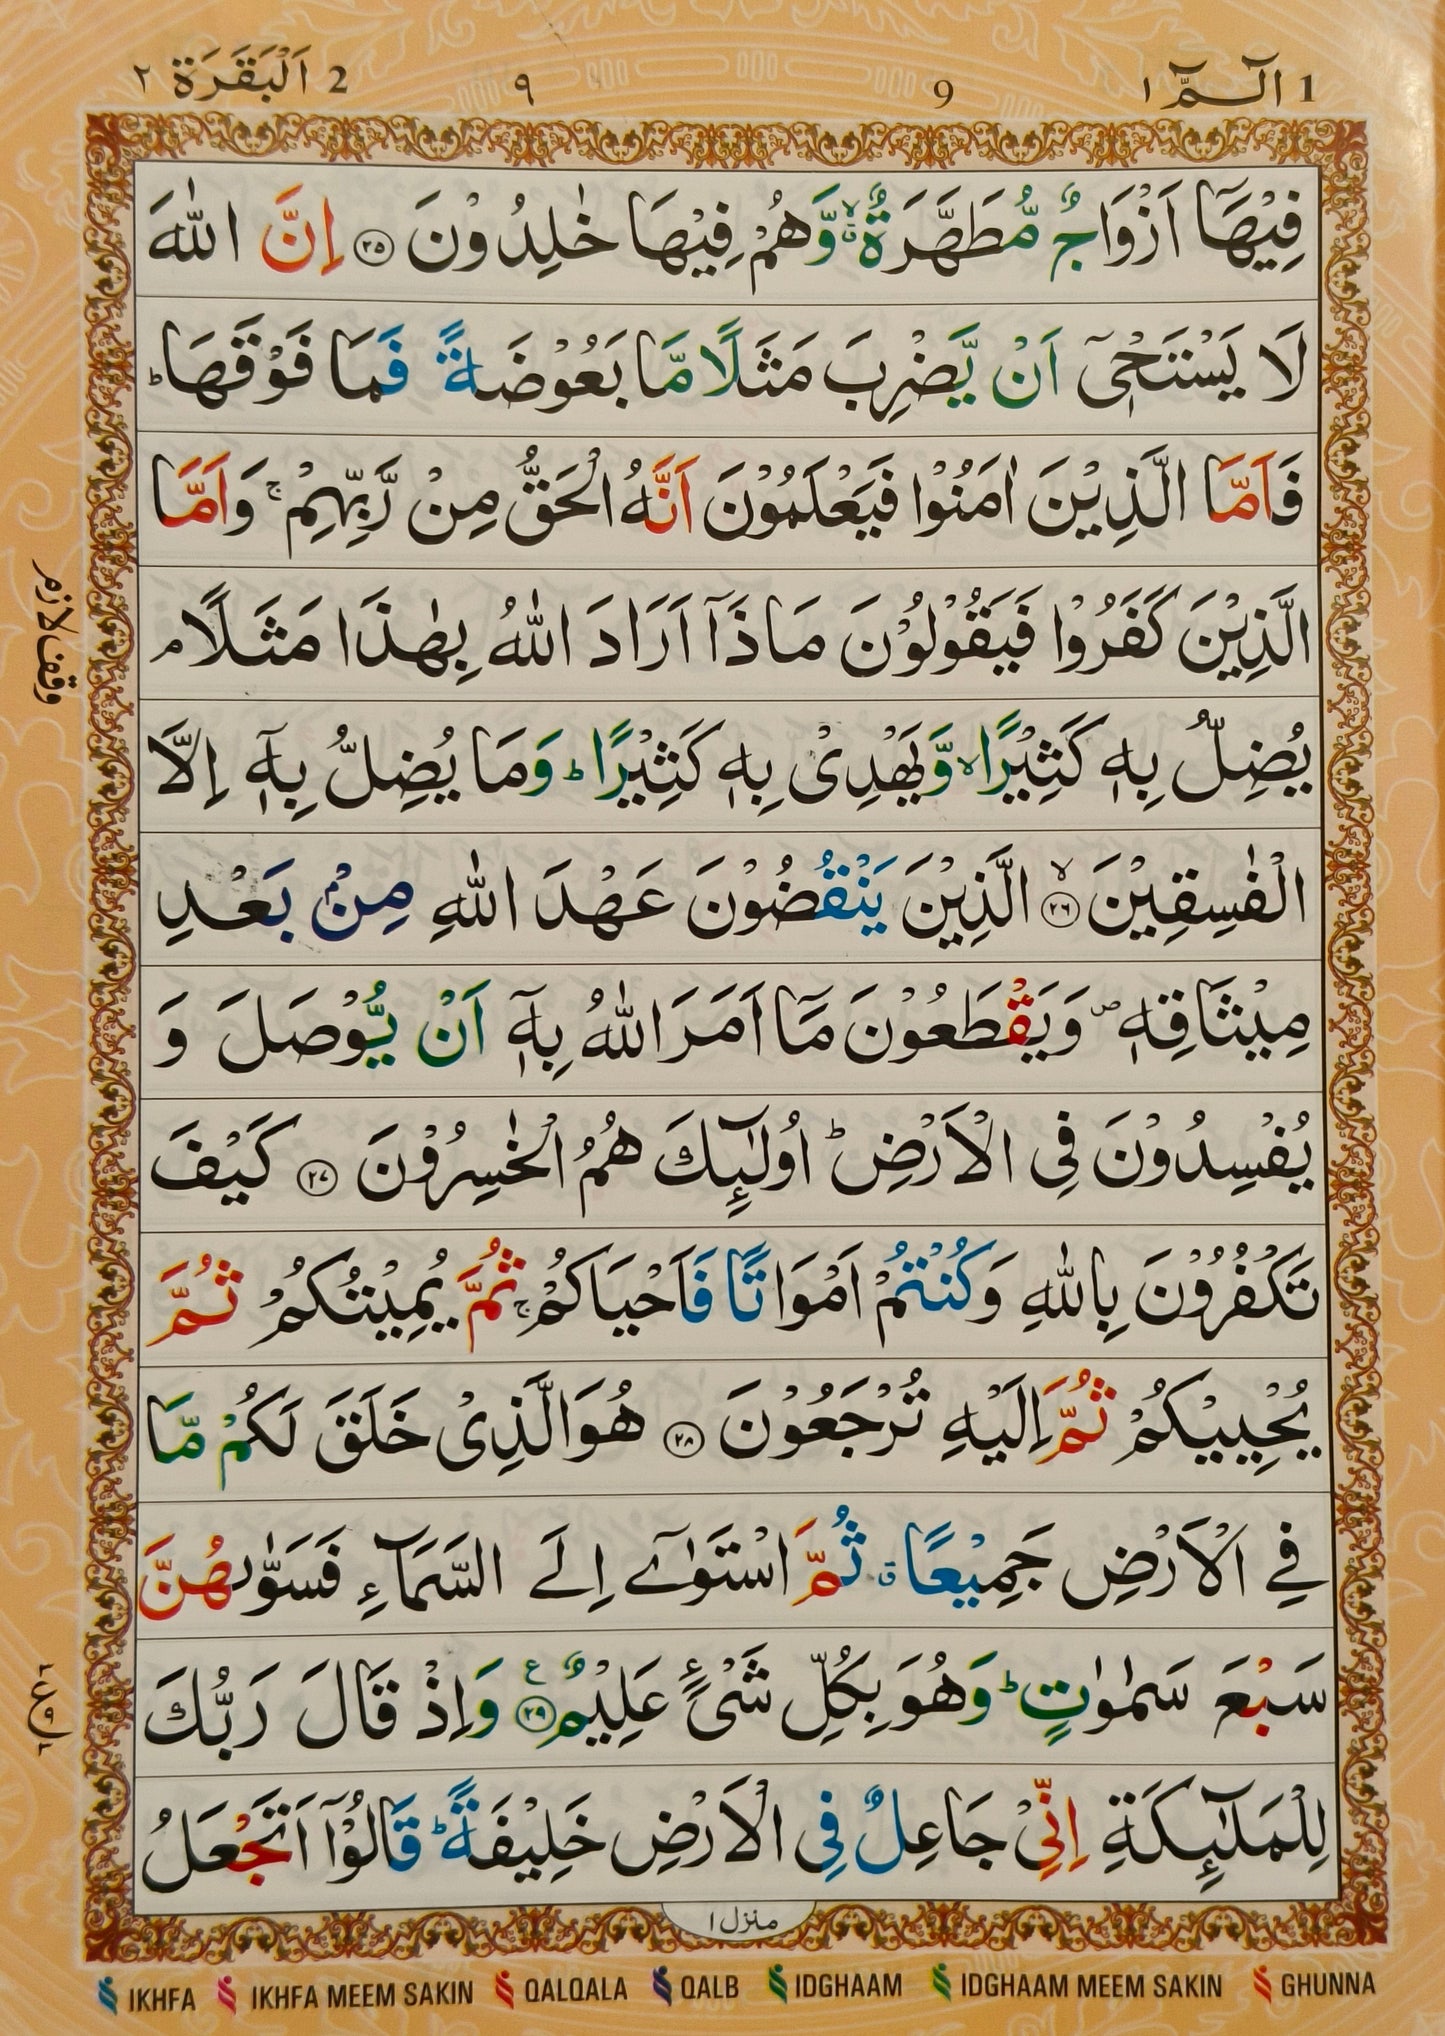 1 الٓـمّٓ ١ 9 ٩ 2 اَلْبَقَرَة ٢
فِيْهَآ اَزْوَاجٌ مُّطَهَّرَةٌ ۙۗ وَّهُمْ فِيْهَا خٰلِدُوْنَ ﴿٢٥﴾ اِنَّ اللّٰهَ
لَا يَسْتَحْيٖٓ اَنْ يَّضْرِبَ مَثَلًا مَّا بَعُوْضَةً فَمَا فَوْقَهَا ؕ
فَاَمَّا الَّذِيْنَ اٰمَنُوْا فَيَعْلَمُوْنَ اَنَّهُ الْحَقُّ مِنْ رَّبِّهِمْ ۚ وَاَمَّا
الَّذِيْنَ كَفَرُوْا فَيَقُوْلُوْنَ مَاذَآ اَرَادَ اللّٰهُ بِهٰذَا مَثَلًا ۘ
وقف لازم
يُضِلُّ بِهٖ كَثِيْرًا ۙ وَّيَهْدِىْ بِهٖ كَثِيْرًا ؕ وَمَا يُضِلُّ بِهٖٓ اِلَّا
الْفٰسِقِيْنَ ﴿٢٦﴾ ۙ الَّذِيْنَ يَنْقُضُوْنَ عَهْدَ اللّٰهِ مِنْۢ بَعْدِ
مِيْثَاقِهٖ ۪ وَيَقْطَعُوْنَ مَآ اَمَرَ اللّٰهُ بِهٖٓ اَنْ يُّوْصَلَ وَ
يُفْسِدُوْنَ فِى الْاَرْضِ ؕ اُولٰٓئِكَ هُمُ الْخٰسِرُوْنَ ﴿٢٧﴾ كَيْفَ
تَكْفُرُوْنَ بِاللّٰهِ وَكُنْتُمْ اَمْوَاتًا فَاَحْيَاكُمْ ۚ ثُمَّ يُمِيْتُكُمْ ثُمَّ
يُحْيِيْكُمْ ثُمَّ اِلَيْهِ تُرْجَعُوْنَ ﴿٢٨﴾ هُوَ الَّذِىْ خَلَقَ لَكُمْ مَّا
فِے الْاَرْضِ جَمِيْعًا ۗ ثُمَّ اسْتَوٰٓے اِلَے السَّمَآءِ فَسَوّٰىهُنَّ
سَبْعَ سَمٰوٰتٍ ؕ وَهُوَ بِكُلِّ شَىْءٍ عَلِيْمٌ ﴿٢٩﴾ ع وَاِذْ قَالَ رَبُّكَ
لِلْمَلٰٓئِكَةِ اِنِّىْ جَاعِلٌ فِى الْاَرْضِ خَلِيْفَةً ؕ قَالُوْٓا اَتَجْعَلُ
منزل ١
IKHFA IKHFA MEEM SAKIN QALQALA QALB IDGHAAM IDGHAAM MEEM SAKIN GHUNNA